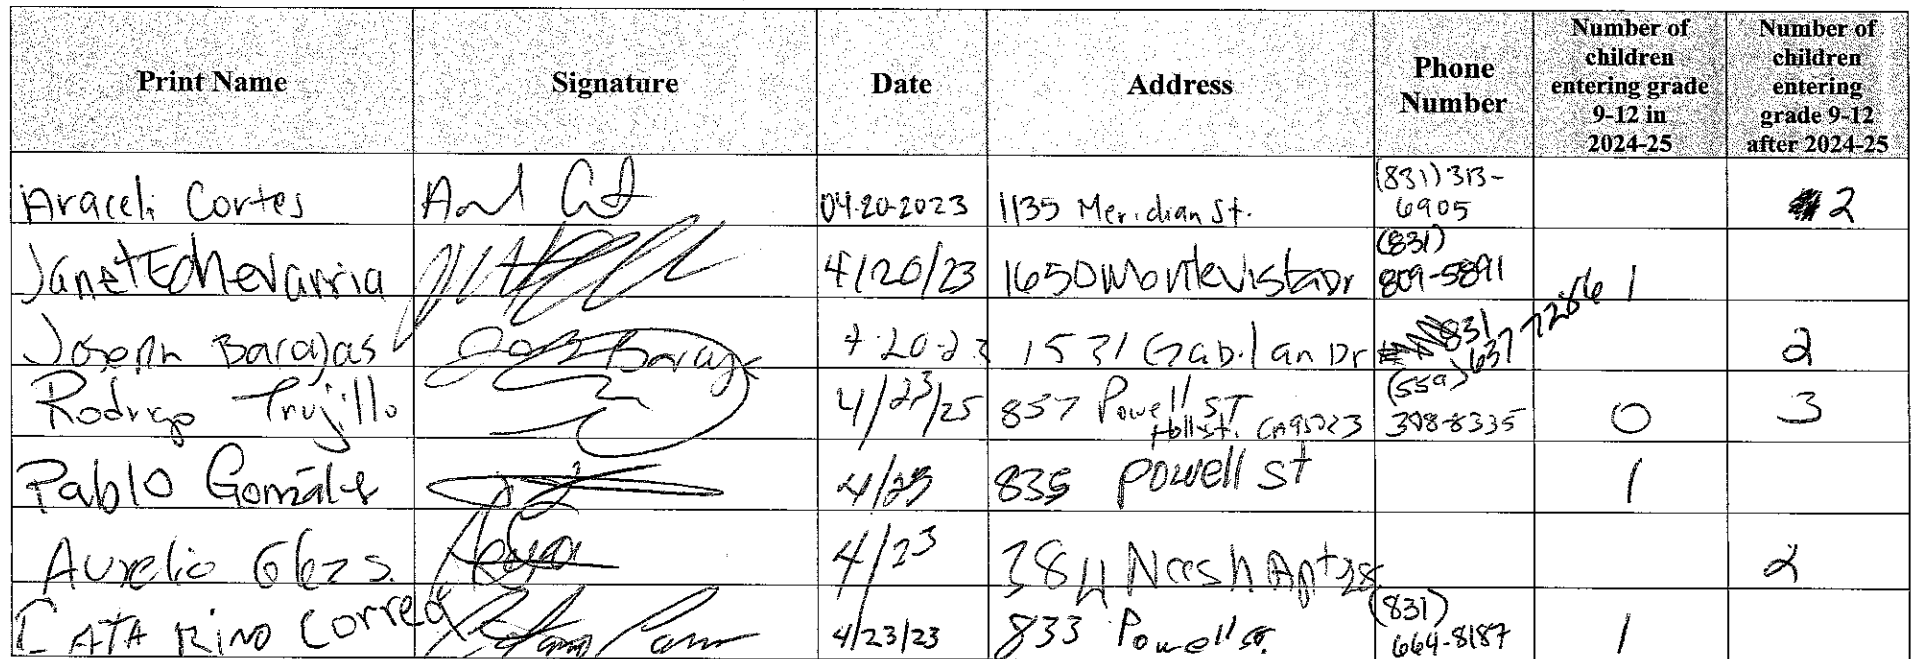 Print Name Signature Date Address Phone Number Number of children entering grade 9-12 in 2024-25 Number of children entering grade 9-12 after 2024-25
Araceli Cortes 04-20-2023 1135 Meridian St. (831) 313-6905 2
Janet Echevarria 4/20/23 1650 Monte Vista Dr (831) 809-5891 1
Joseph Barajas 4-20-23 1531 Gabilan Dr 831 637 7286 2
Rodrigo Trujillo 4/23/25 857 Powell ST Hollist. CA 95023 (559) 398-8335 0 3
Pablo González 4/23 835 Powell St 1
Aurelio Glez S. 4/23 Apt 28 2
CATARINO Correa 4/23/23 833 Powell St. (831) 664-8187 1